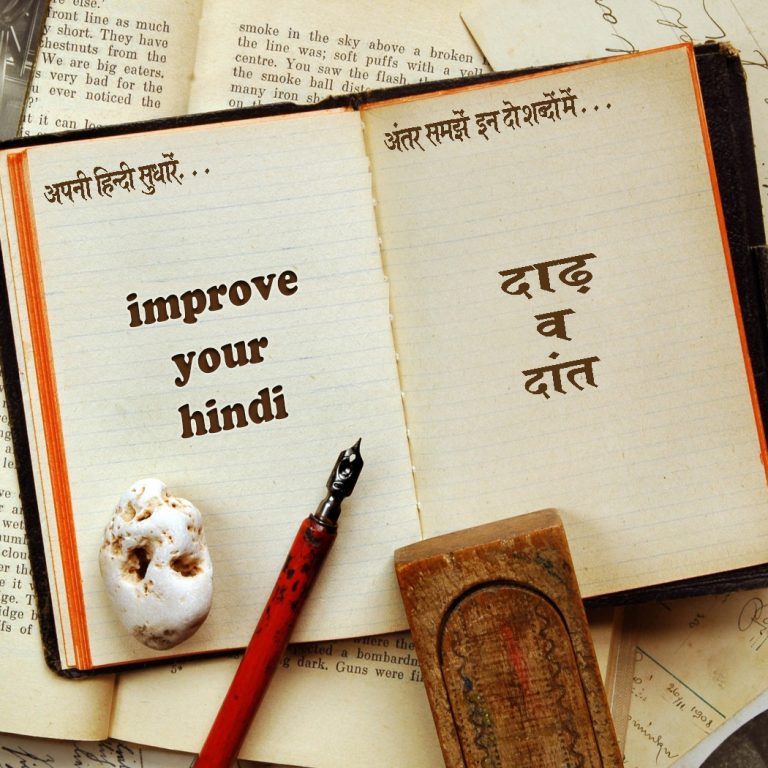 else.'
front line as much
short. They have
chestnuts from the
We are big eaters.
very bad for the
ever noticed the
it can
smoke in the sky above a broken
the line was; soft puffs with a
centre. You saw the flash,
the smoke ball
many iron
on
अपनी हिन्दी सुधारें...
improve
your
hindi
अंतर समझें इन दो शब्दों में...
दाढ़
व
दांत
where the
a
dark. Guns were